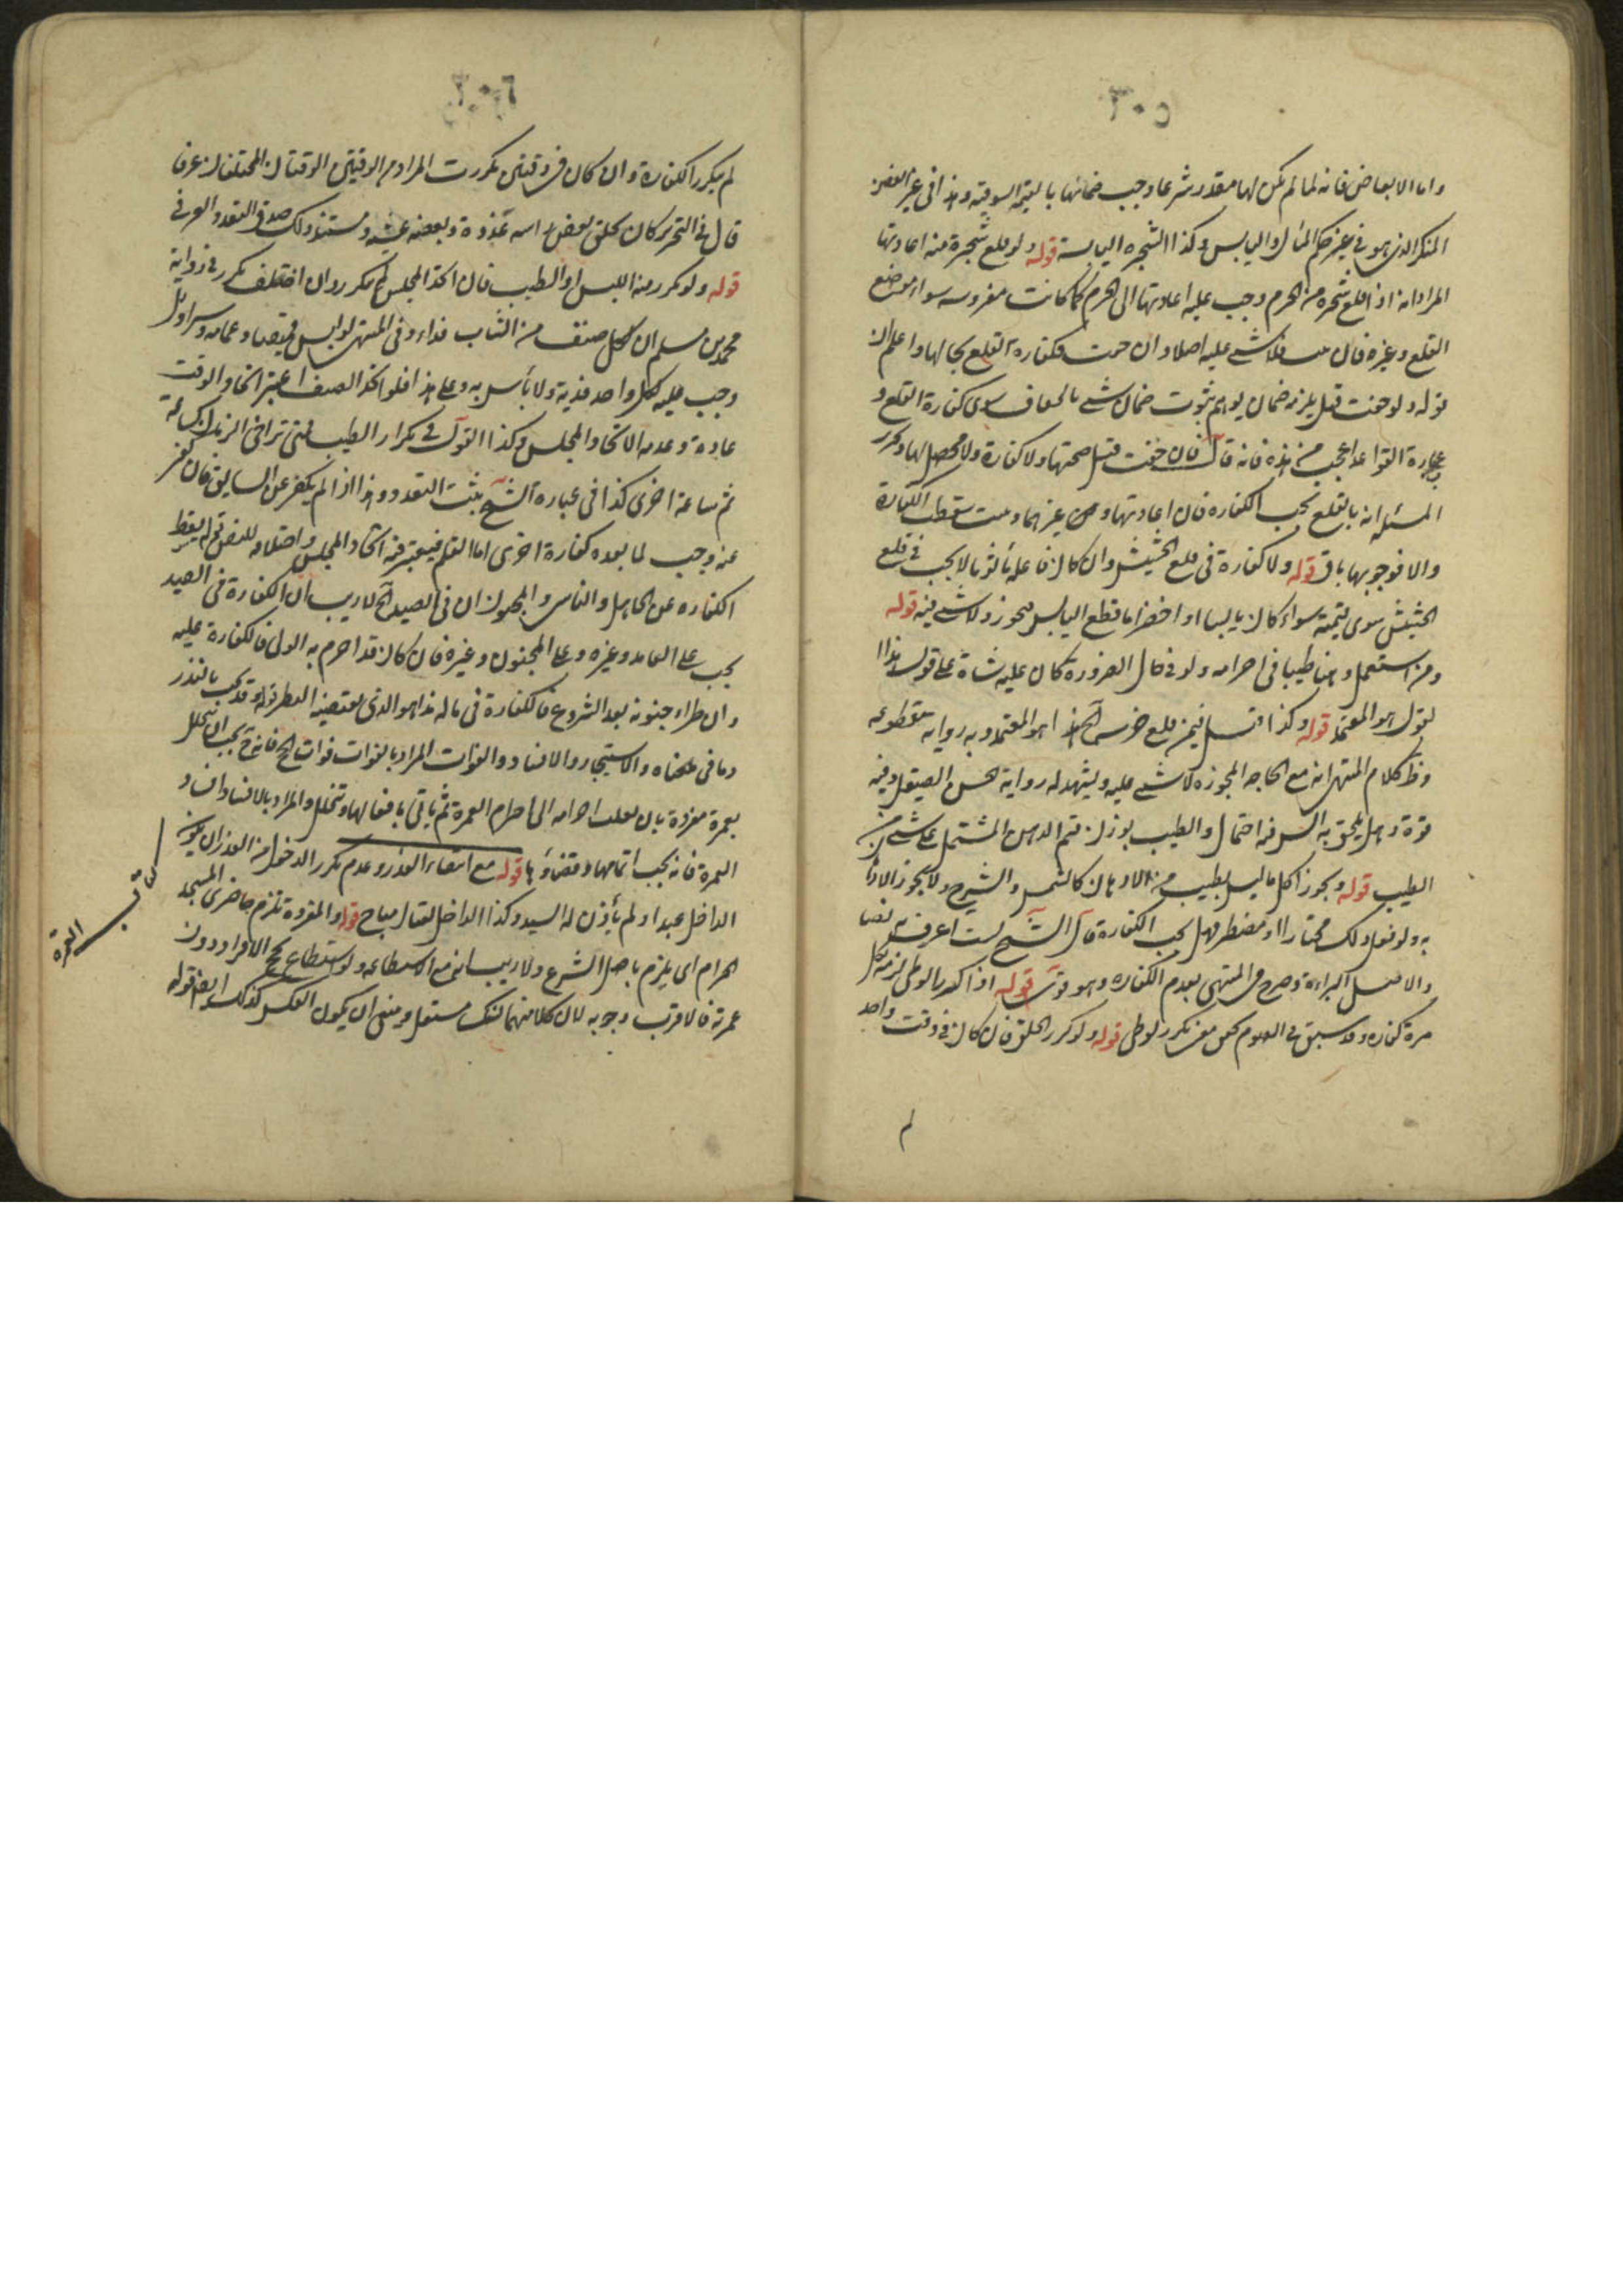 ٣٠٥
واما الابعاض فانه لما لم يكن لها مقدر شرعا وجب ضمانها بالقيمة السوقية وهذا في غير الغصن
المنكسر الذي هو في حكم اليابس وكذا الشجرة اليابسة قوله ولو قلع شجرة منه اعادتها
المراد انه اذا قلع شجرة من الحرم وجب عليه اعادتها الى الحرم كما كانت مغروسة سواء موضع
القلع وغيره فان فلا شيء عليه اصلا وان جفت فكفارة القلع بحالها واعلم ان
قوله ولو جفت قيل يلزمه ضمان يوهم ثبوت ضمان شيء بالجفاف سوى كفارة القلع و
عبارة القواعد اعجب من هذه فانه قال فان جفت قبل ضمنها ولا كفارة ولا محصل لها وتحرير
المسئلة انه بالقلع تجب الكفارة فان اعادتها او غيرها ونبتت سقطت الكفارة
والا فوجوبها باق قوله ولا كفارة في قلع الحشيش وان كان فاعله مأثوما لا يجب في قلع
الحشيش سوى قيمته سواء كان يابسا او اخضر اما قطع اليابس فيجوز ولا شيء فيه قوله
ومن استعمل دهنا طيبا في احرامه ولو في حال الضرورة كان عليه شاة على قول هذا
القول هو المعتمد قوله وكذا قيل فيمن قلع ضرسه الخ هذا هو المعتمد وبه رواية مقطوعة
وظ كلام المنتهى انه مع الحاجة المجوزة لا شيء عليه ويشهد له رواية الحسن الصيقل وفيه
قوة وهل يلحق به السن فيه احتمال والطيب يوزن فتم الدهن المشتمل على شيء من
الطيب قوله ويجوز اكل ما ليس بطيب من الادهان كالسمن والشيرج ولا يجوز الادهان
به ولو فعل ذلك مختارا او مضطرا فهل تجب الكفارة قال الشيخ لست اعرف به نصا
والاصل البراءة وصرح في المنتهى بعدم الكفارة وهو قوي قوله اذا كرر الوطي لزمه بكل
مرة كفارة وقد سبق في الصوم تحقيق معنى تكرر الوطي قوله ولو كرر الحلق فان كان في وقت واحد
لم
٣٠٦
لم يتكرر الكفارة وان كان في وقتين تكررت المراد من الوقتين الوقتان المختلفان عرفا
قال في التحرير كان يحلق بعض راسه غدوة وبعضه عشية ومستند ذلك صدق التعدد العرفي
قوله ولو كرر منه اللبس او الطيب فان اتحد المجلس لم يتكرر وان اختلف تكرر في رواية
محمد بن مسلم ان لكل صنف من الثياب فداء وفي المنتهى لو لبس قميصا وعمامة وسراويل
وجب عليه لكل واحد فدية ولا بأس به وعلى هذا فلو اتحد الصنف اعتبر اتحاد الوقت
عادة وعدمه لا اتحاد المجلس وكذا القول في تكرار الطيب فمتى تراخى الزمان كساعة
ثم ساعة اخرى كذا في عبارة الشيخ يثبت التعدد وهذا اذا لم يكفر عن السابق فان كفر
عنه وجب لما بعده كفارة اخرى اما القلم فيعتبر فيه اتحاد المجلس واختلافه للنص قوله تسقط
الكفارة عن الجاهل والناسي والمجنون الا في الصيد الخ لا ريب ان الكفارة في الصيد
تجب على العامد وغيره وعلى المجنون وغيره فان كان قد احرم به الولي فالكفارة عليه
وان طراء جنونه بعد الشروع فالكفارة في ماله هذا هو الذي يقتضيه النظر قوله وقد تجب بالنذر
وما في معناه والاستيجار والافساد والفوات المراد بالفوات فوات الحج فانه ح يجب ان يتحلل
بعمرة مفردة بان ينقلب احرامه الى احرام العمرة ثم ياتي بافعالها وتتحلل والمراد بالافساد افساد
العمرة فانه يجب اتمامها وقضاؤها قوله مع انتفاء العذر وعدم تكرر الدخول من العذر ان يكون
الداخل عبدا ولم يأذن له السيد وكذا الداخل لقتال مباح قوله والمفردة تلزم حاضري المسجد
الحرام اي يلزم باصل الشرع ولا ريب انه مع الاستطاعة ولو استطاع لحج الافراد دون
عمرته فالاقرب وجوبه لان كلا منهما نسك مستقل وينبغي ان يكون العكس كذلك ايضا قوله
كتاب العمرة